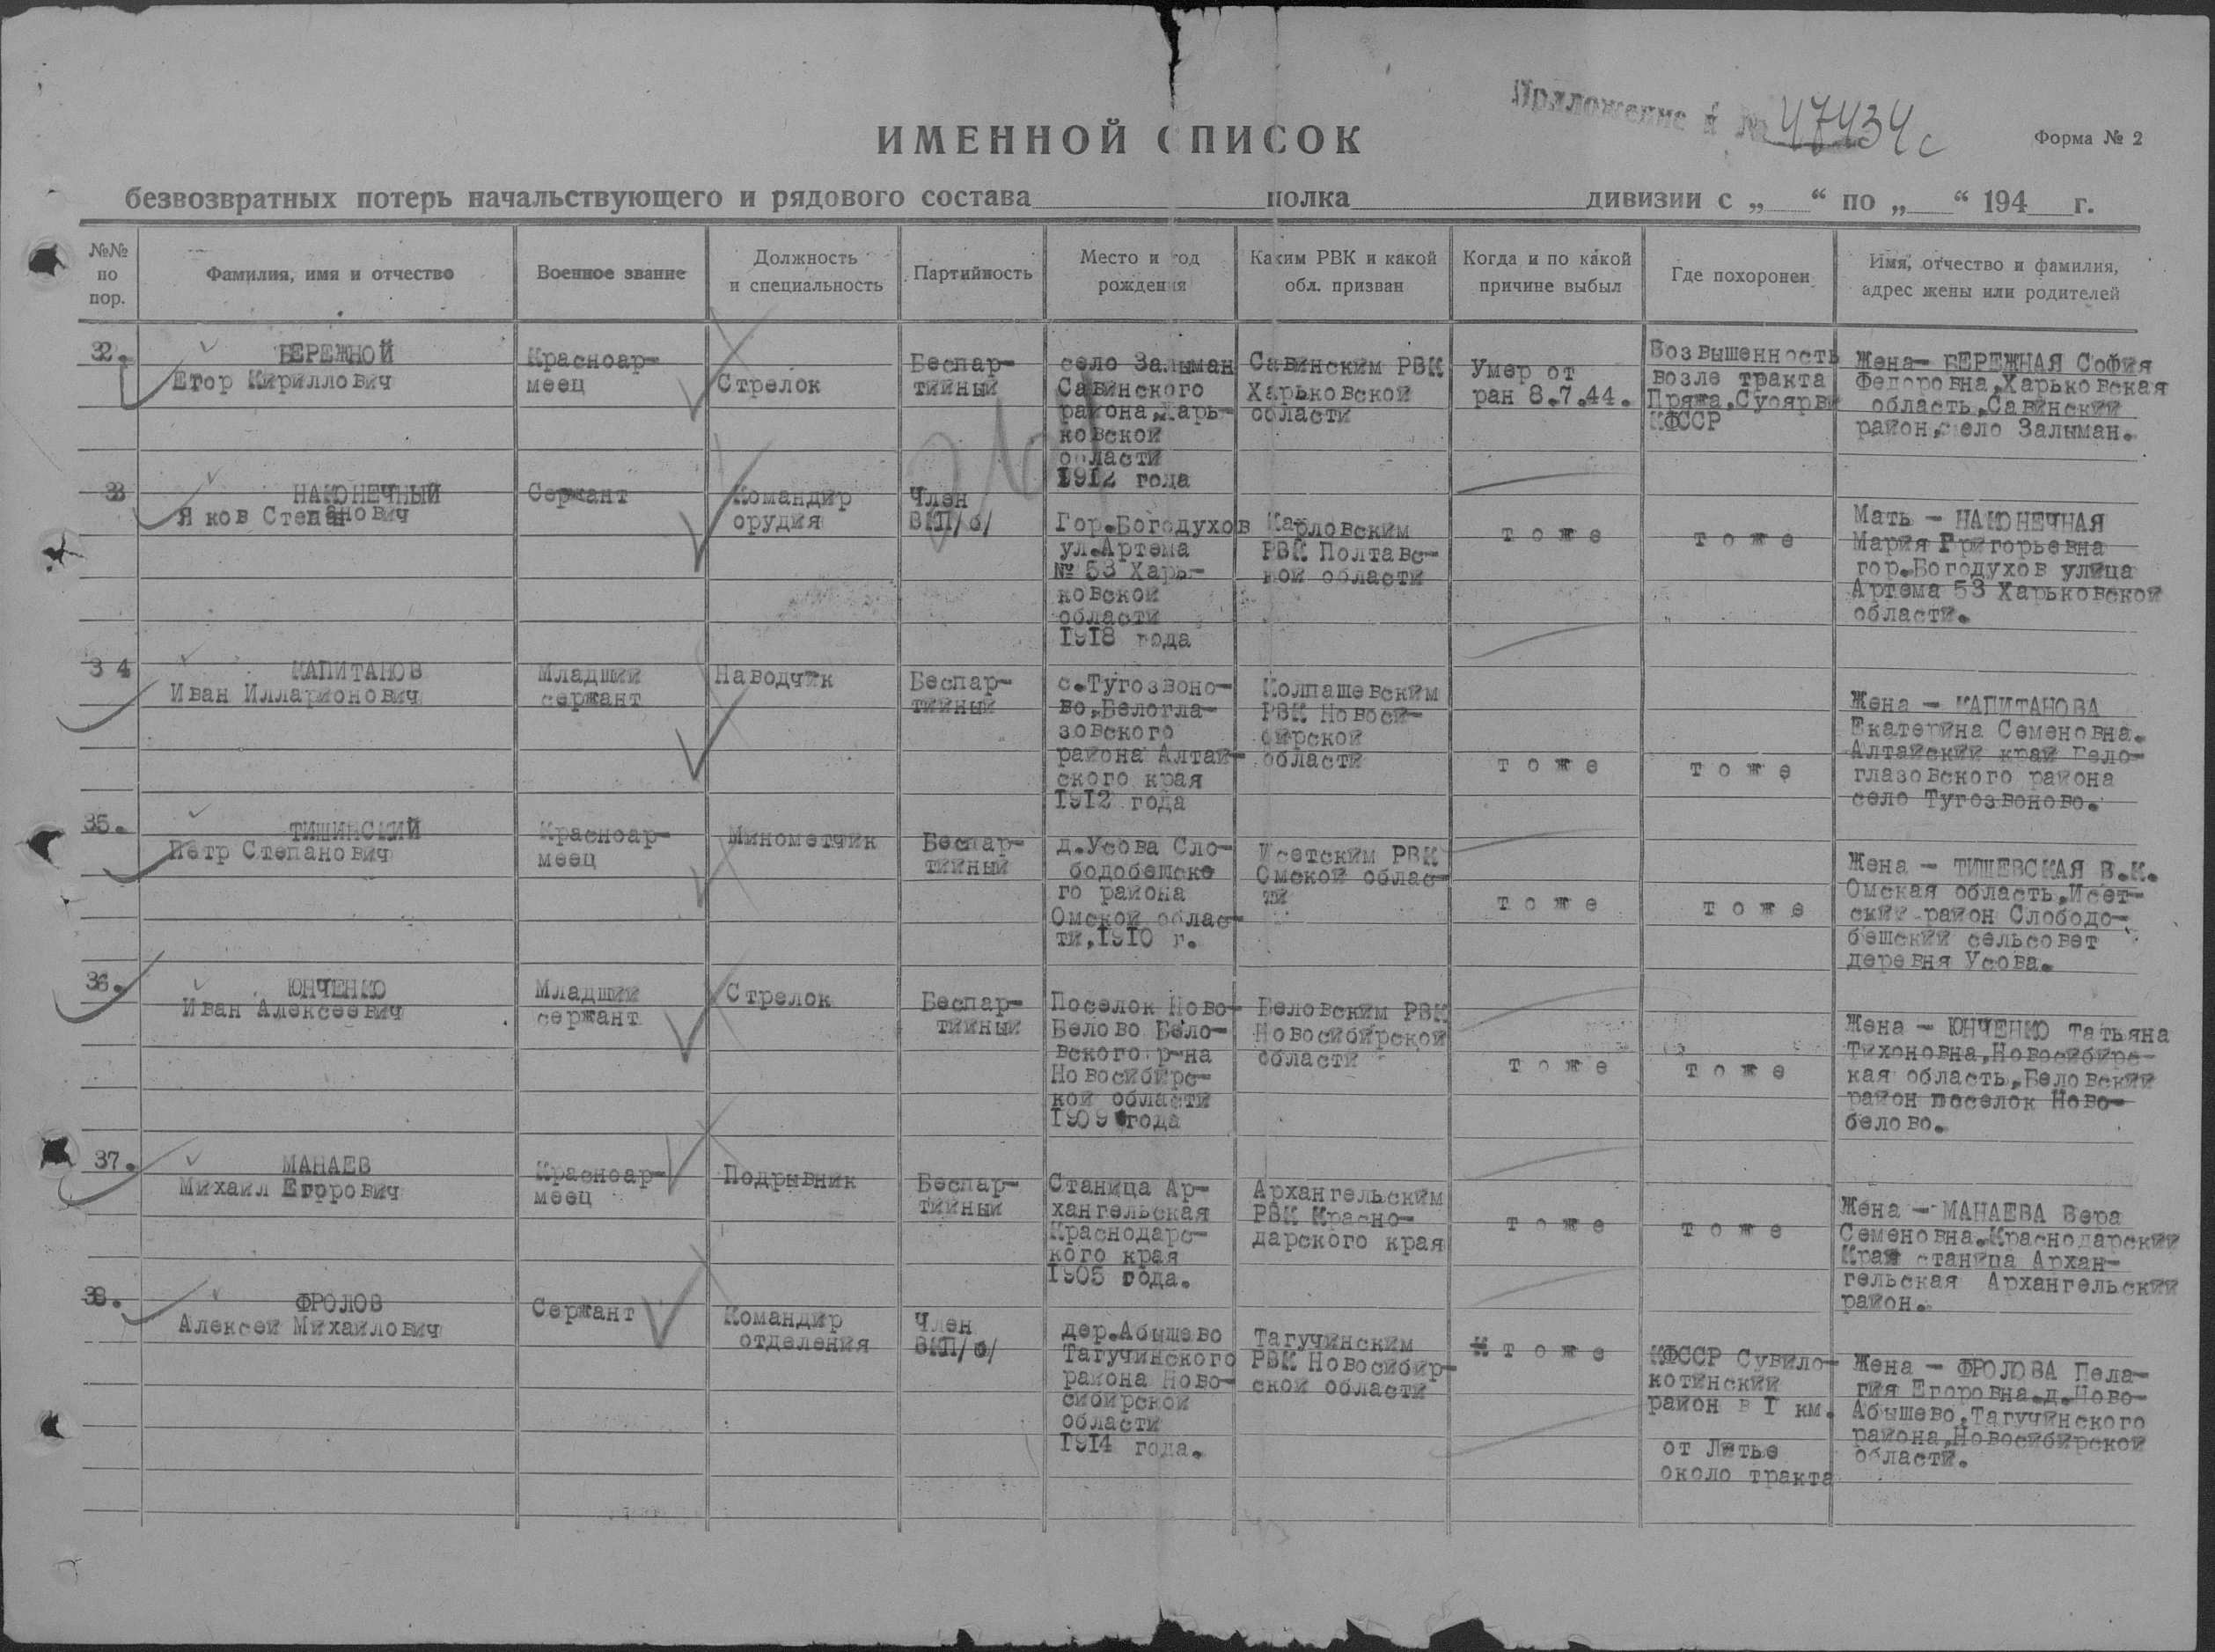 Приложение к № 47434с
ИМЕННОЙ СПИСОК
Форма № 2
безвозвратных потерь начальствующего и рядового состава полка дивизии с „ “ по „ “ 194 г.
№№ по пор.
Фамилия, имя и отчество
Военное звание
Должность и специальность
Партийность
Место и год рождения
Каким РВК и какой обл. призван
Когда и по какой причине выбыл
Где похоронен
Имя, отчество и фамилия, адрес жены или родителей
32.
БЕРЕЖНОЙ
Егор Кириллович
Красноар-
меец
Стрелок
Беспар-
тийный
село Залыман
Савинского
района,Харь-
ковской
области
1912 года
Савинским РВК
Харьковской
области
Умер от
ран 8.7.44.
Возвышенность
возле тракта
Пряжа,Суоярви
КФССР
Жена- БЕРЕЖНАЯ София
Федоровна,Харьковская
область,Савинский
район,село Залыман.
33
НАКОНЕЧНЫЙ
Яков Степанович
Сержант
Командир
орудия
Член
ВКП/б/
Гор.Богодухов
ул.Артема
№ 53 Харь-
ковской
области
1918 года
Карловским
РВК Полтавс-
кой области
т о ж е
т о ж е
Мать - НАКОНЕЧНАЯ
Мария Григорьевна
гор.Богодухов улица
Артема 53 Харьковской
области.
34
КАПИТАНОВ
Иван Илларионович
Младший
сержант
Наводчик
Беспар-
тийный
с.Тугозвоно-
во,Белогла-
зовского
района Алтай-
ского края
1912 года
Колпашевским
РВК Новоси-
бирской
области
т о ж е
т о ж е
Жена - КАПИТАНОВА
Екатерина Семеновна.
Алтайский край Бело-
глазовского района
село Тугозвоново.
35.
ТИШИНСКИЙ
Петр Степанович
Красноар-
меец
Минометчик
Беспар-
тийный
д.Усова Сло-
бодобешско
го района
Омской облас-
ти,1910 г.
Исетским РВК
Омской облас-
ти
т о ж е
т о ж е
Жена - ТИШЕВСКАЯ В.К.
Омская область,Исет-
ский район Слободо-
бешский сельсовет
деревня Усова.
36.
ЮНЧЕНКО
Иван Алексеевич
Младший
сержант
Стрелок
Беспар-
тийный
Поселок Ново-
Белово Бело-
вского р-на
Новосибирс-
кой области
1909 года
Беловским РВК
Новосибирской
области
т о ж е
т о ж е
Жена - ЮНЧЕНКО Татьяна
Тихоновна,Новосибирс-
кая область,Беловский
район поселок Ново-
белово.
37.
МАНАЕВ
Михаил Егорович
Красноар-
меец
Подрывник
Беспар-
тийный
Станица Ар-
хангельская
Краснодарс-
кого края
1905 года.
Архангельским
РВК Красно-
дарского края
т о ж е
т о ж е
Жена - МАНАЕВА Вера
Семеновна.Краснодарский
Край станица Архан-
гельская Архангельский
район.
38.
ФРОЛОВ
Алексей Михайлович
Сержант
Командир
отделения
Член
ВКП/б/
дер.Абышево
Тагучинского
района Ново-
сибирской
области
1914 года.
Тагучинским
РВК Новосибир-
ской области
т о ж е
КФССР Сувило-
котинский
район в 1 км.
от Летье
около тракта
Жена - ФРОЛОВА Пела-
гия Егоровна.д.Ново-
Абышево,Тагучинского
района,Новосибирской
области.